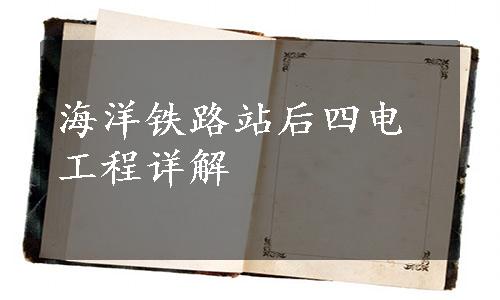 海洋铁路站后四电
工程详解